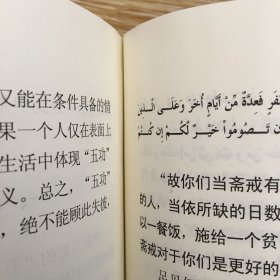 又能在条件具备的情
果一个人仅在表面上
生活中体现“五功”
义。总之，“五功”
，绝不能顾此失彼，
فَعِدَّةٌ مِّنْ أَيَّامٍ أُخَرَ وَعَلَى الَّذِينَ
تَصُومُوا خَيْرٌ لَّكُمْ إِن كُنتُمْ
“故你们当斋戒有
的人，当依所缺的日数
以一餐饭，施给一个贫
斋戒对于你们是更好的